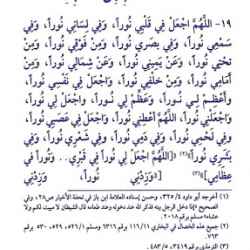 ١٩- اللَّهُمَّ اجْعَلْ فِي قَلْبِي نُوراً، وَفِي لِسَانِي نُوراً، وَفِي
سَمْعِي نُوراً، وَفِي بَصَرِي نُوراً، وَمِنْ فَوْقِي نُوراً، وَمِنْ
تَحْتِي نُوراً، وَعَنْ يَمِينِي نُوراً، وَعَنْ شِمَالِي نُوراً، وَمِنْ
أَمَامِي نُوراً، وَمِنْ خَلْفِي نُوراً، وَاجْعَلْ فِي نَفْسِي نُوراً،
وَأَعْظِمْ لِي نُوراً، وَعَظِّمْ لِي نُوراً، وَاجْعَلْ لِي نُوراً،
وَاجْعَلْنِي نُوراً، اللَّهُمَّ أَعْطِنِي نُوراً، وَاجْعَلْ فِي عَصَبِي نُوراً،
وَفِي لَحْمِي نُوراً، وَفِي دَمِي نُوراً، وَفِي شَعْرِي نُوراً، وَفِي
بَشَرِي نُوراً(٢) [اللَّهُمَّ اجْعَلْ لِي نُوراً فِي قَبْرِي.. وَنُوراً فِي
عِظَامِي](٣) [وَزِدْنِي نُوراً، وَزِدْنِي
(١) أخرجه أبو داود ٣٢٥/٤، وحسن إسناده العلامة ابن باز في تحفة الأخيار ص٢٨، وفي
الصحيح: «إذا دخل الرجل بيته فذكر الله عند دخوله وعند طعامه قال الشيطان لا مبيت لكم ولا
عشاء» مسلم برقم ٢٠١٨.
(٢) جميع هذه الخصال في البخاري ١١٦/١١ برقم ٦٣١٦ ومسلم ٥٢٦/١، ٥٢٩، ٥٣٠ برقم
٧٦٣.
(٣) الترمذي برقم ٣٤١٩، ٤٨٣/٥.